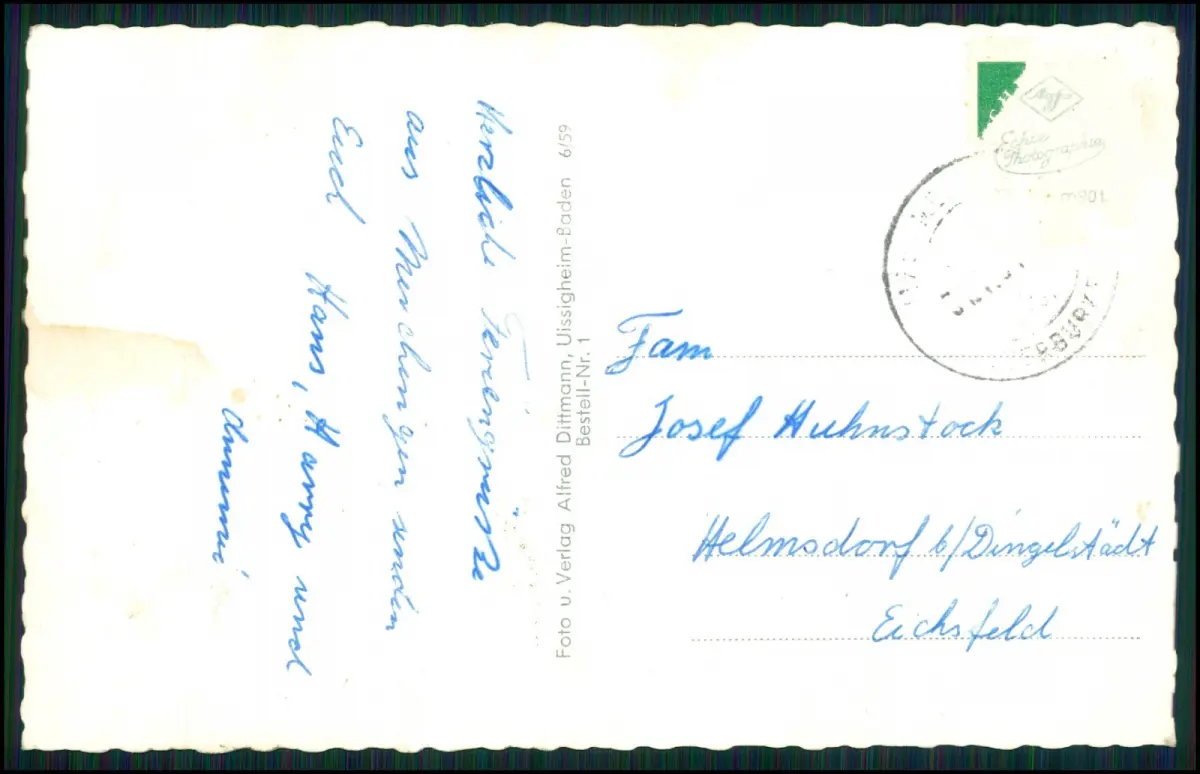 Herzliche Feriengrüsse
aus Menchingen senden
Euch Hans, Harry und
Annemie
Foto u. Verlag Alfred Dittmann, Uissigheim-Baden 6/59
Bestell-Nr. 1
Echte
Photographie
Fam
Josef Huhnstock
Helmsdorf b/Dingelstädt
Eichsfeld